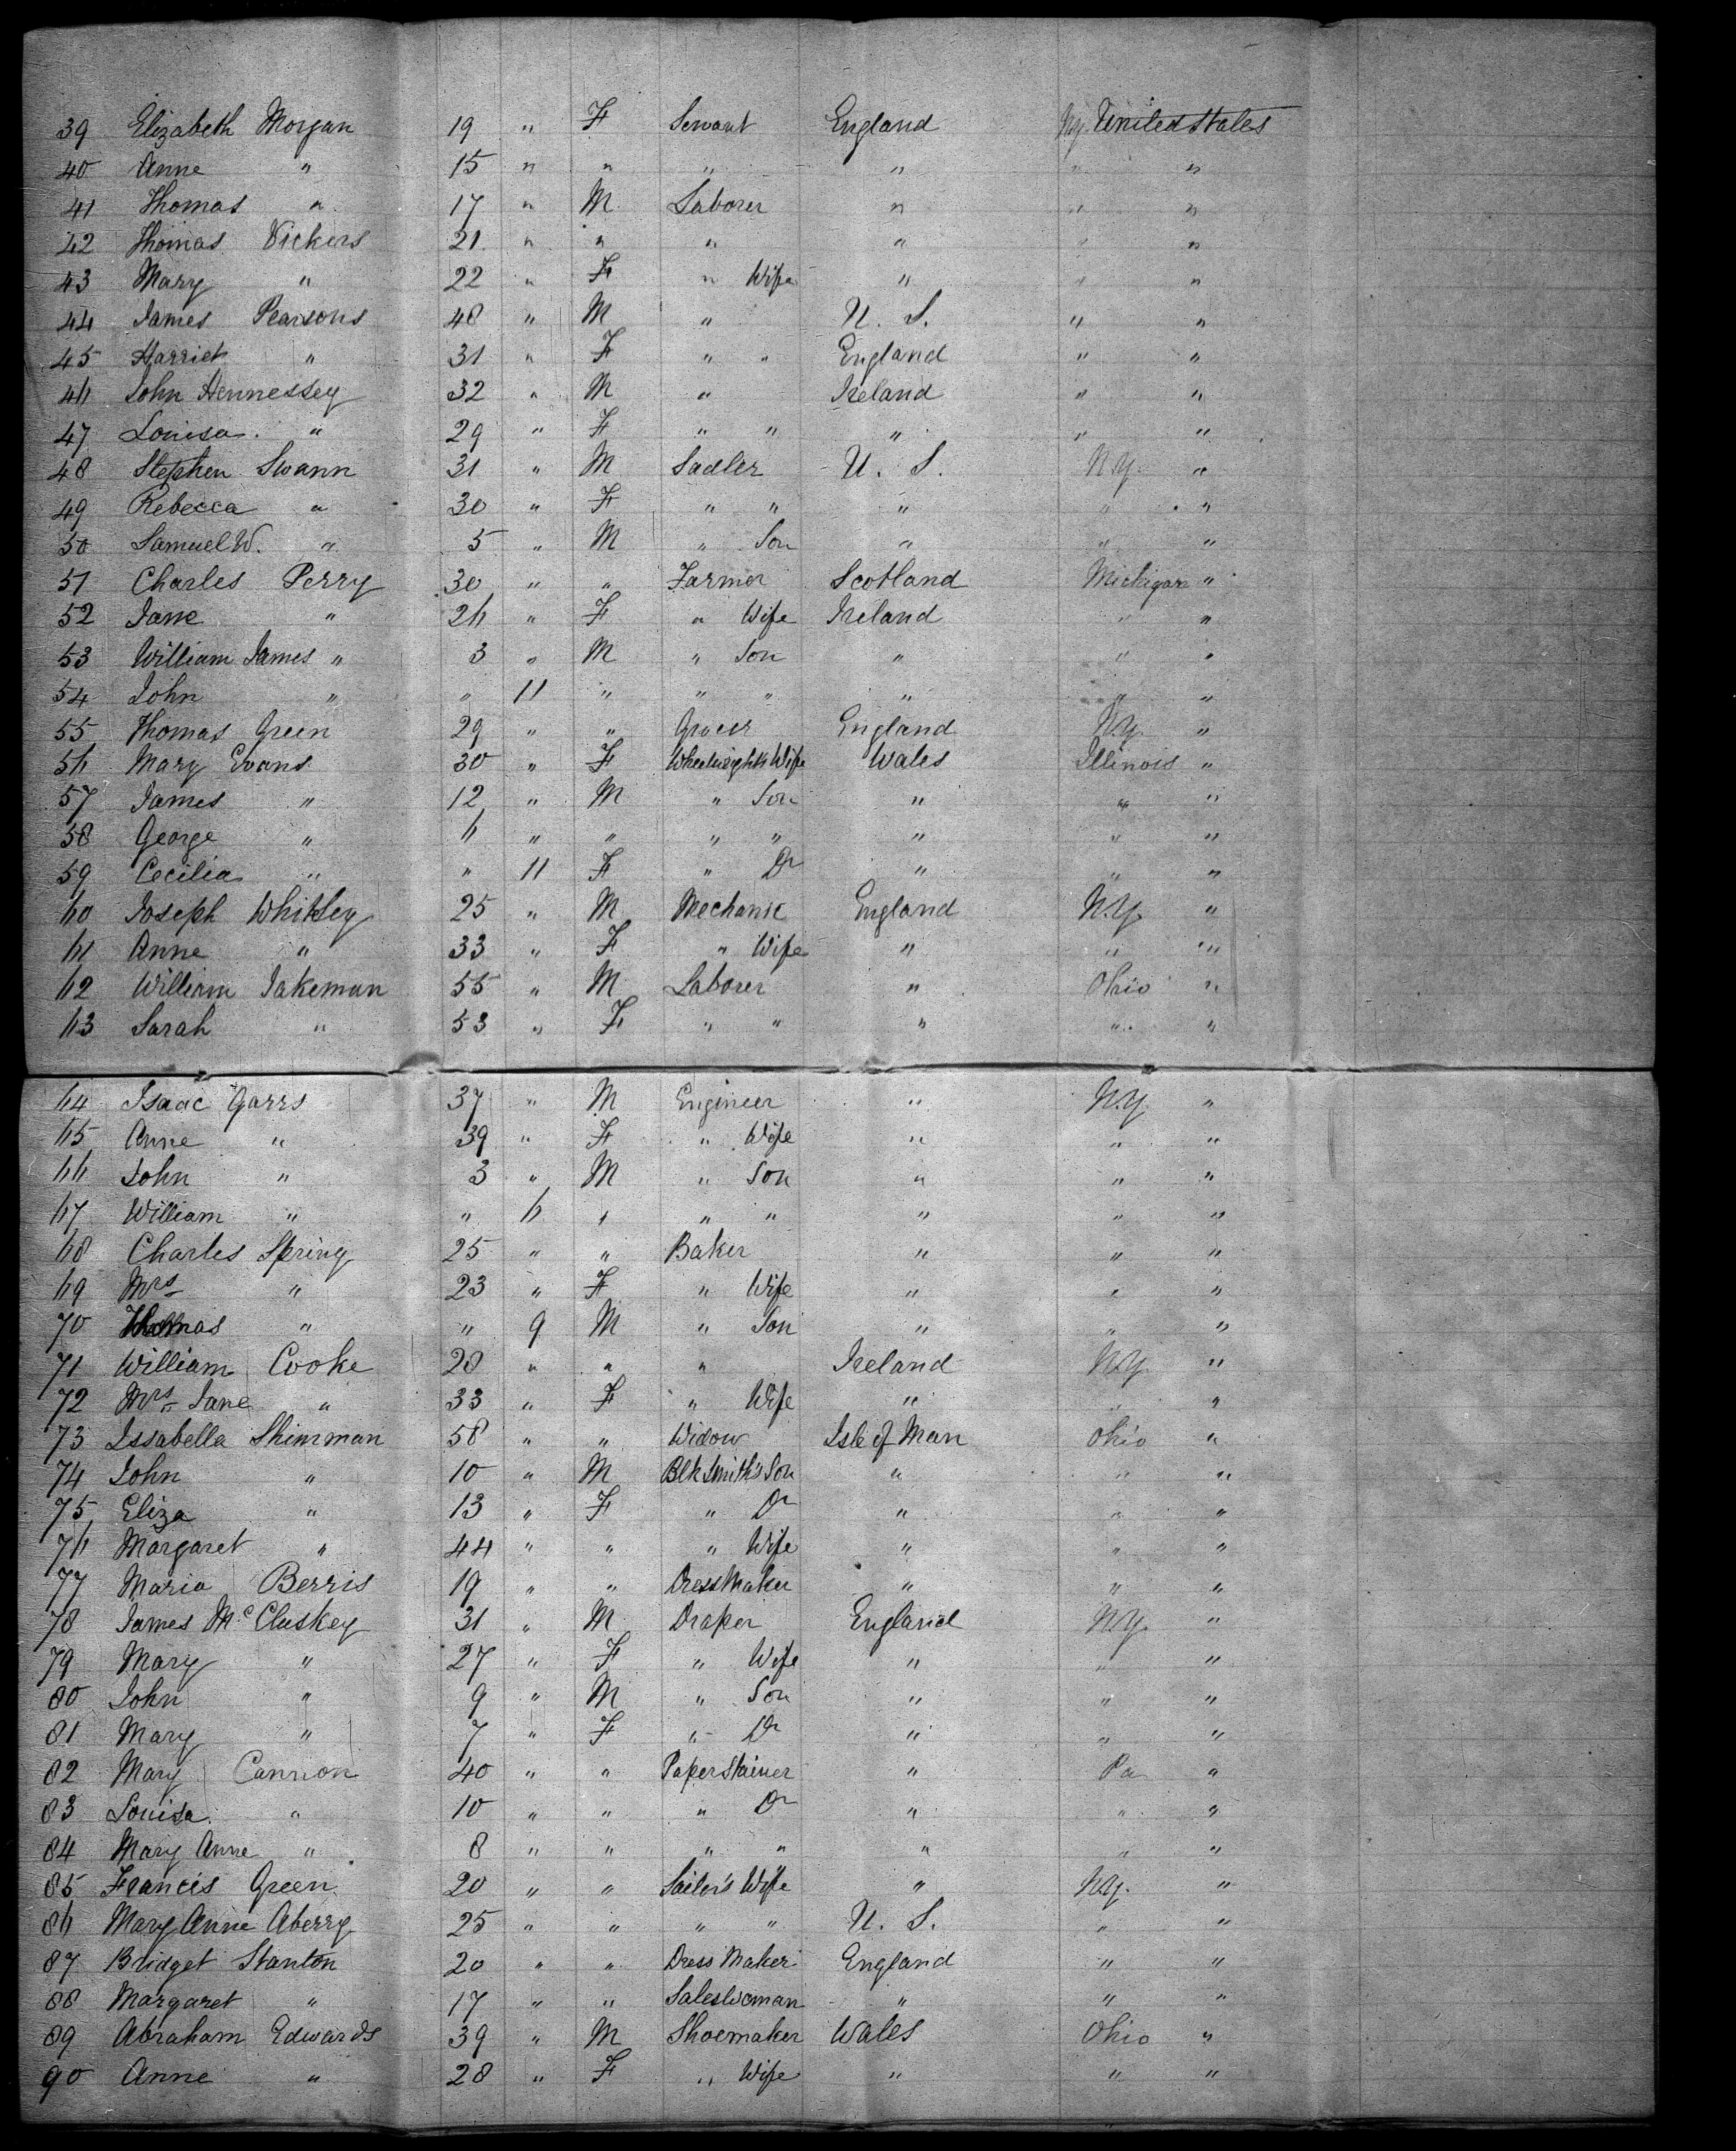 39 Elizabeth Morgan 19 " F Servant England N.Y. United States
40 Anne " 15 " " " " " "
41 Thomas " 17 " M Laborer " " "
42 Thomas Vickers 21 " " " " " "
43 Mary " 22 " F " Wife " " "
44 James Pearsons 48 " M " U. S. " "
45 Harriet " 31 " F " " England " "
46 John Hennessey 32 " M " Ireland " "
47 Louisa " 29 " F " " " " "
48 Stephen Swann 31 " M Sadler U. S. N.Y. "
49 Rebecca " 30 " F " " " " "
50 Samuel W. " 5 " M " Son " " "
51 Charles Perry 30 " " Farmer Scotland Michigan "
52 Jane " 26 " F " Wife Ireland " "
53 William James " 3 " M " Son " " "
54 John " " 11 " " " " " "
55 Thomas Green 29 " " Grocer England N.Y. "
56 Mary Evans 30 " F Wheelwrights Wife Wales Illinois "
57 James " 12 " M " Son " " "
58 George " 6 " " " " " " "
59 Cecilia " " 11 F " Dr " " "
60 Joseph Whitley 25 " M Mechanic England N.Y. "
61 Anne " 33 " F " Wife " " "
62 William Jakeman 55 " M Laborer " Ohio "
63 Sarah " 53 " F " " " " "
64 Isaac Garrs 37 " M Engineer " N.Y. "
65 Anne " 39 " F " Wife " " "
66 John " 3 " M " Son " " "
67 William " " 6 " " " " " "
68 Charles Spring 25 " " Baker " " "
69 Mrs " 23 " F " Wife " " "
70 Thomas " " 9 M " Son " " "
71 William Cooke 28 " " " Ireland N.Y. "
72 Mrs Jane " 33 " F " Wife " " "
73 Issabella Shimman 58 " " Widow Isle of Man Ohio "
74 John " 10 " M Blk Smith's Son " " "
75 Eliza " 13 " F " Dr " " "
76 Margaret " 44 " " " Wife " " "
77 Maria Berris 19 " " Dress Maker " " "
78 James McCluskey 31 " M Draper England N.Y. "
79 Mary " 27 " F " Wife " " "
80 John " 9 " M " Son " " "
81 Mary " 7 " F " Dr " " "
82 Mary Cannon 40 " " Paper Stainer " Pa "
83 Louisa " 10 " " " Dr " " "
84 Mary Anne " 8 " " " " " " "
85 Francis Green 20 " " Sailor's Wife " N.Y. "
86 Mary Anne Aberry 25 " " " " U. S. " "
87 Bridget Stanton 20 " " Dress Maker England " "
88 Margaret " 17 " " Saleswoman " " "
89 Abraham Edwards 39 " M Shoemaker Wales Ohio "
90 Anne " 28 " F " Wife " " "